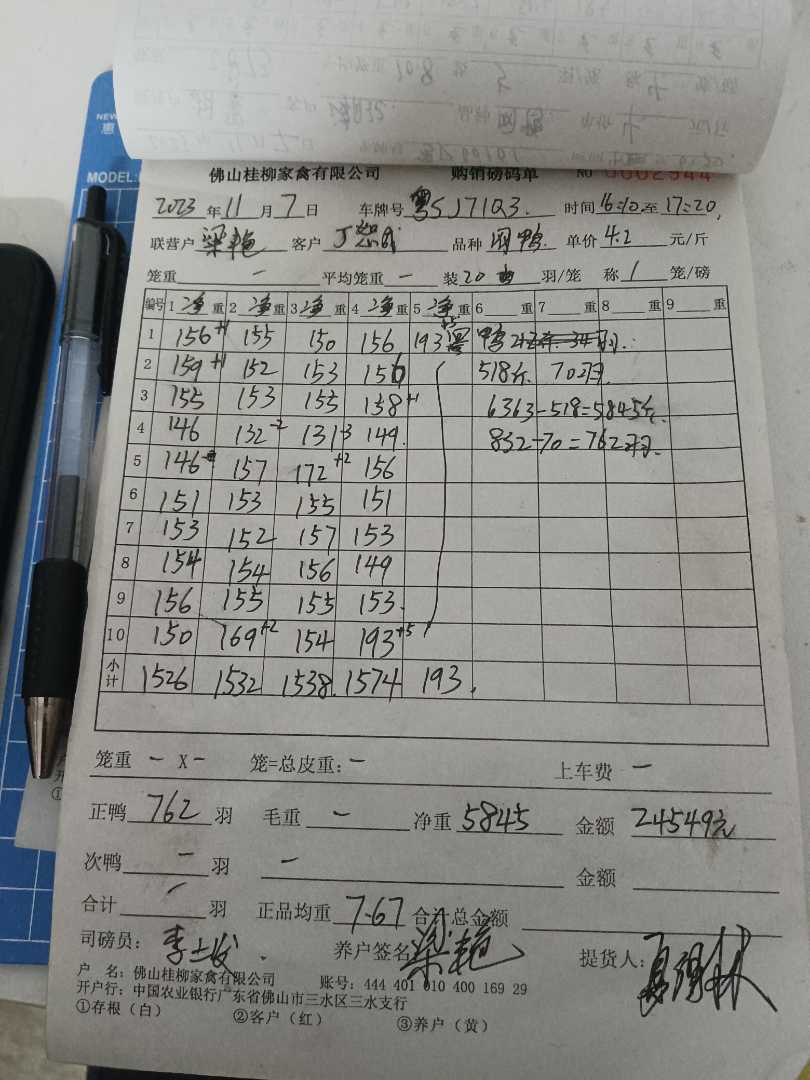 NEW
惠
MODEL:
佛山桂柳家禽有限公司 购销磅码单 NO 0002944
2023 年 11 月 7 日 车牌号 粤SJ71Q3. 时间 16:10 至 17:20,
联营户 梁艳 客户 品种 鸭 单价 4.2 元/斤
笼重 — 平均笼重 — 装 20 羽/笼 称 1 笼/磅
编号 1 净 重 2 净 重 3 净 重 4 净 重 5 净 重 6 重 7 重 8 重 9 重
1 156+1 155 150 156 193+5 鸭
2 159+1 152 153 156 518斤. 70羽.
3 155 153 155 158+1 6363-518=5845斤.
4 146 132-2 131-3 149. 832-70=762羽.
5 146 157 172+2 156
6 151 153 155 151
7 153 152 157 153
8 154 154 156 149
9 156 155 155 153.
10 150 169+2 154 193+5
小计 1526 1532 1538. 1574 193.
笼重 — X — 笼=总皮重: — 上车费 —
正鸭 762 羽 毛重 — 净重 5845 金额 24549元
次鸭 — 羽 — 金额
合计 — 羽 正品均重 7.67 合计总金额
司磅员: 李 . 养户签名 梁艳 提货人:
户 名: 佛山桂柳家禽有限公司 账号: 444 401 010 400 169 29
开户行: 中国农业银行广东省佛山市三水区三水支行
①存根（白） ②客户（红） ③养户（黄）